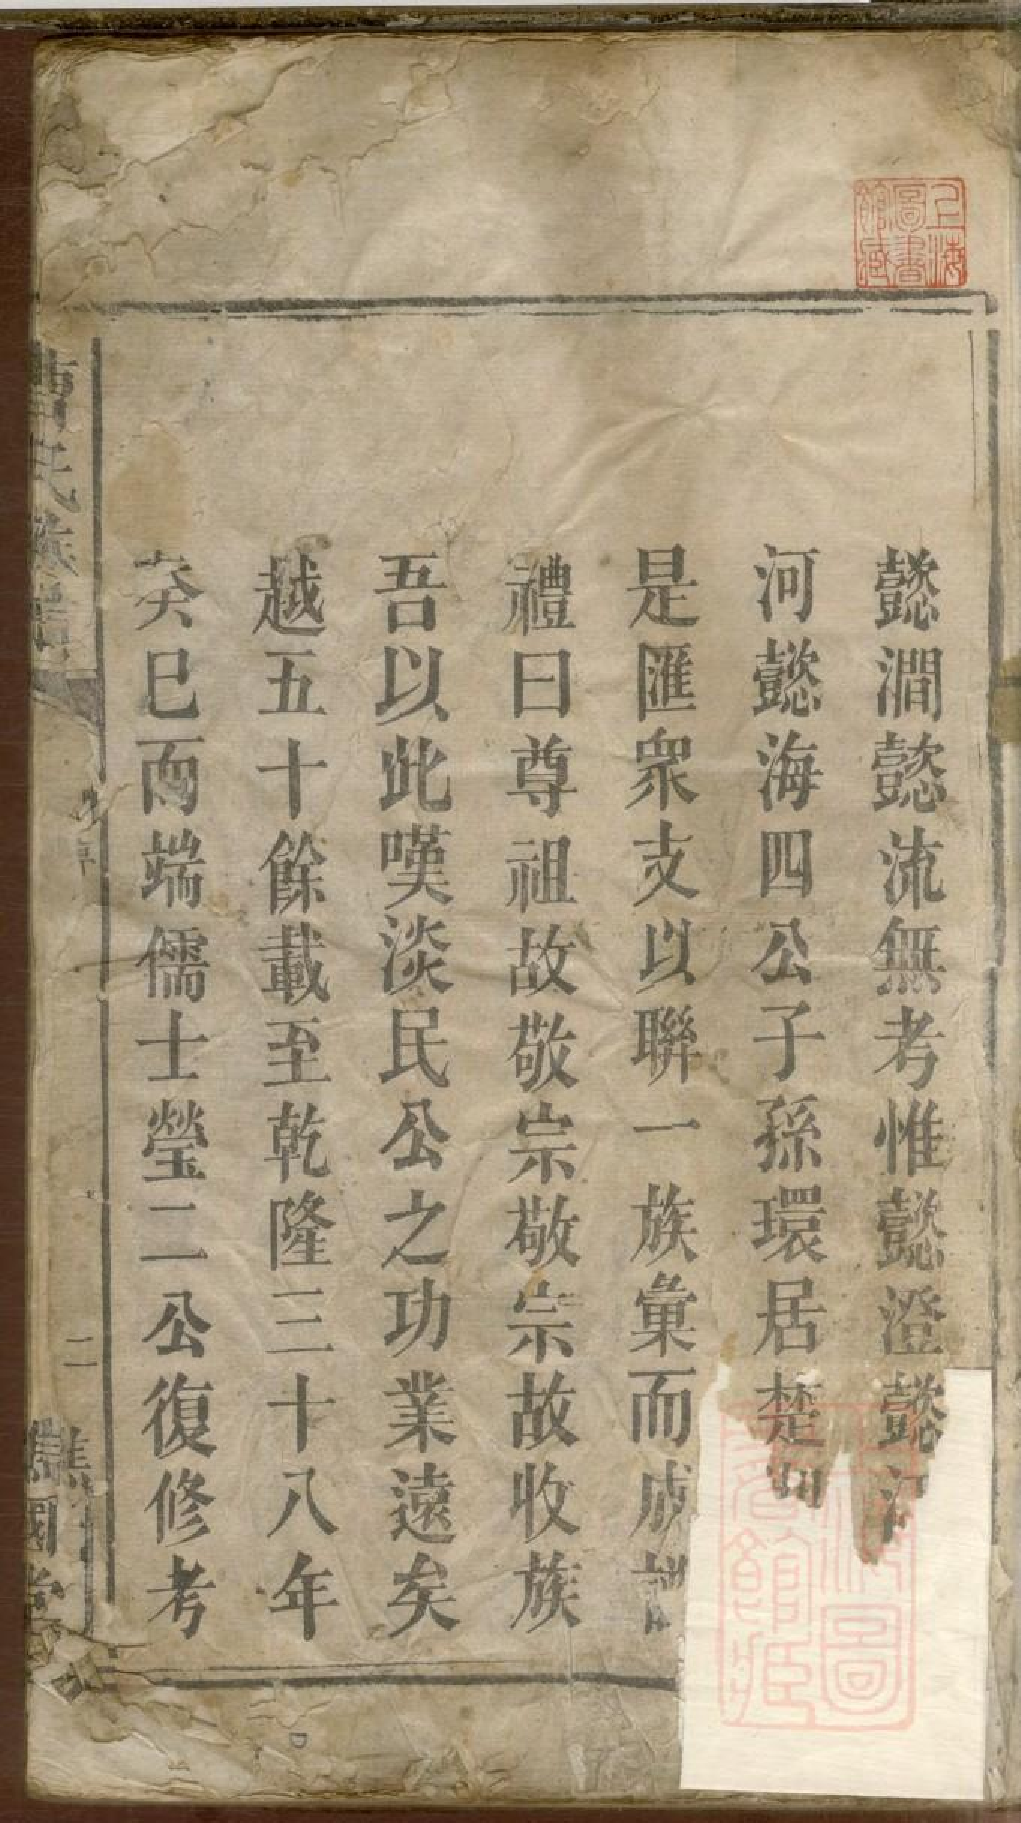 上海圖書館藏
懿澗懿流無考惟懿澄懿江
河懿海四公子孫環居楚
是匯衆支以聯一族彙而成譜
禮曰尊祖故敬宗敬宗故收族
吾以此嘆淡民公之功業遠矣
越五十餘載至乾隆三十八年
癸巳而端儒士瑩二公復修考
氏族譜
二
國堂